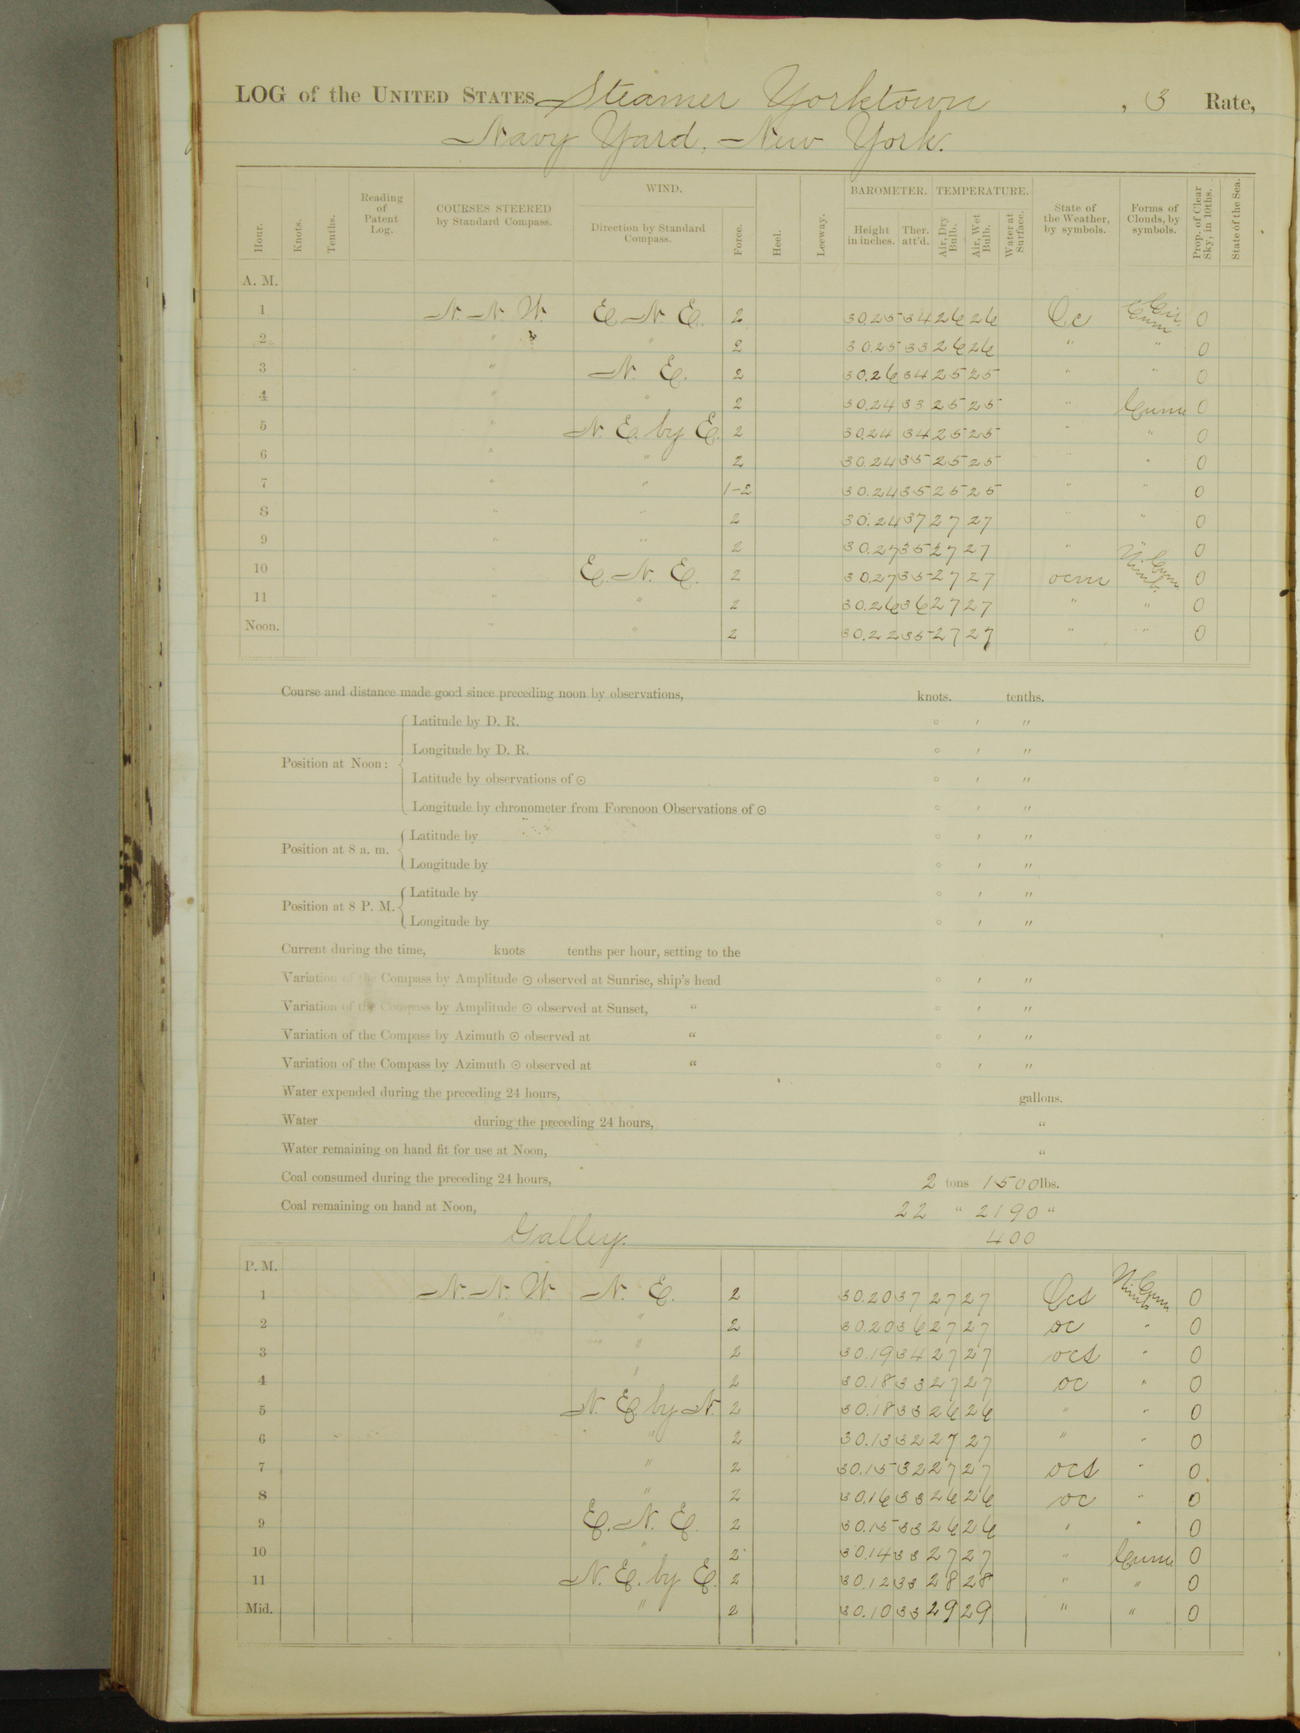 LOG of the UNITED STATES Steamer Yorktown , 3 Rate,
Navy Yard, New York.
Hour. Knots. Tenths. Reading of Patent Log. COURSES STEERED by Standard Compass. WIND. Direction by Standard Compass. Force. Heel. Leeway. BAROMETER. Height in inches. Ther. att'd. TEMPERATURE. Air, Dry Bulb. Air, Wet Bulb. Water at Surface. State of the Weather, by symbols. Forms of Clouds, by symbols. Prop. of Clear Sky, in 10ths. State of the Sea.
A. M.
1 N. N. W. E. N. E. 2 30.25 34 26 26 Oc Cir. Cum 0
2 " " 2 30.25 33 26 26 " " 0
3 " N. E. 2 30.26 34 25 25 " " 0
4 " " 2 30.24 33 25 25 " Cum 0
5 " N. E. by E. 2 30.24 34 25 25 " " 0
6 " " 2 30.24 35 25 25 " " 0
7 " " 1-2 30.24 35 25 25 " " 0
8 " " 2 30.24 37 27 27 " " 0
9 " " 2 30.27 35 27 27 " " 0
10 E. N. E. 2 30.27 35 27 27 ocm Cum Nimb. 0
11 " " 2 30.26 36 27 27 " " 0
Noon. " " 2 30.22 35 27 27 " " 0
Course and distance made good since preceding noon by observations, knots. tenths.
Position at Noon: Latitude by D. R. ° ′ ″
Longitude by D. R. ° ′ ″
Latitude by observations of ☉ ° ′ ″
Longitude by chronometer from Forenoon Observations of ☉ ° ′ ″
Position at 8 a. m. Latitude by ° ′ ″
Longitude by ° ′ ″
Position at 8 P. M. Latitude by ° ′ ″
Longitude by ° ′ ″
Current during the time, knots tenths per hour, setting to the
Variation of the Compass by Amplitude ☉ observed at Sunrise, ship's head ° ′ ″
Variation of the Compass by Amplitude ☉ observed at Sunset, " ° ′ ″
Variation of the Compass by Azimuth ☉ observed at " ° ′ ″
Variation of the Compass by Azimuth ☉ observed at " ° ′ ″
Water expended during the preceding 24 hours, gallons.
Water during the preceding 24 hours, "
Water remaining on hand fit for use at Noon, "
Coal consumed during the preceding 24 hours, 2 tons 1500 lbs.
Coal remaining on hand at Noon, 22 " 2190 "
Galley. 400
P. M.
1 N. N. W. N. E. 2 30.20 37 27 27 Ocs Cum Nimb 0
2 " " 2 30.20 36 27 27 oc " 0
3 " " 2 30.19 34 27 27 ocs " 0
4 " 2 30.18 33 27 27 oc " 0
5 N. E by N. 2 30.18 33 26 26 " " 0
6 " 2 30.13 32 27 27 " " 0
7 " 2 30.15 32 27 27 ocs " 0
8 " 2 30.16 33 26 26 oc " 0
9 E. N. E. 2 30.15 33 26 26 " " 0
10 " 2 30.14 33 27 27 " Cum 0
11 N. E. by E. 2 30.12 33 28 28 " " 0
Mid. " 2 30.10 33 29 29 " " 0